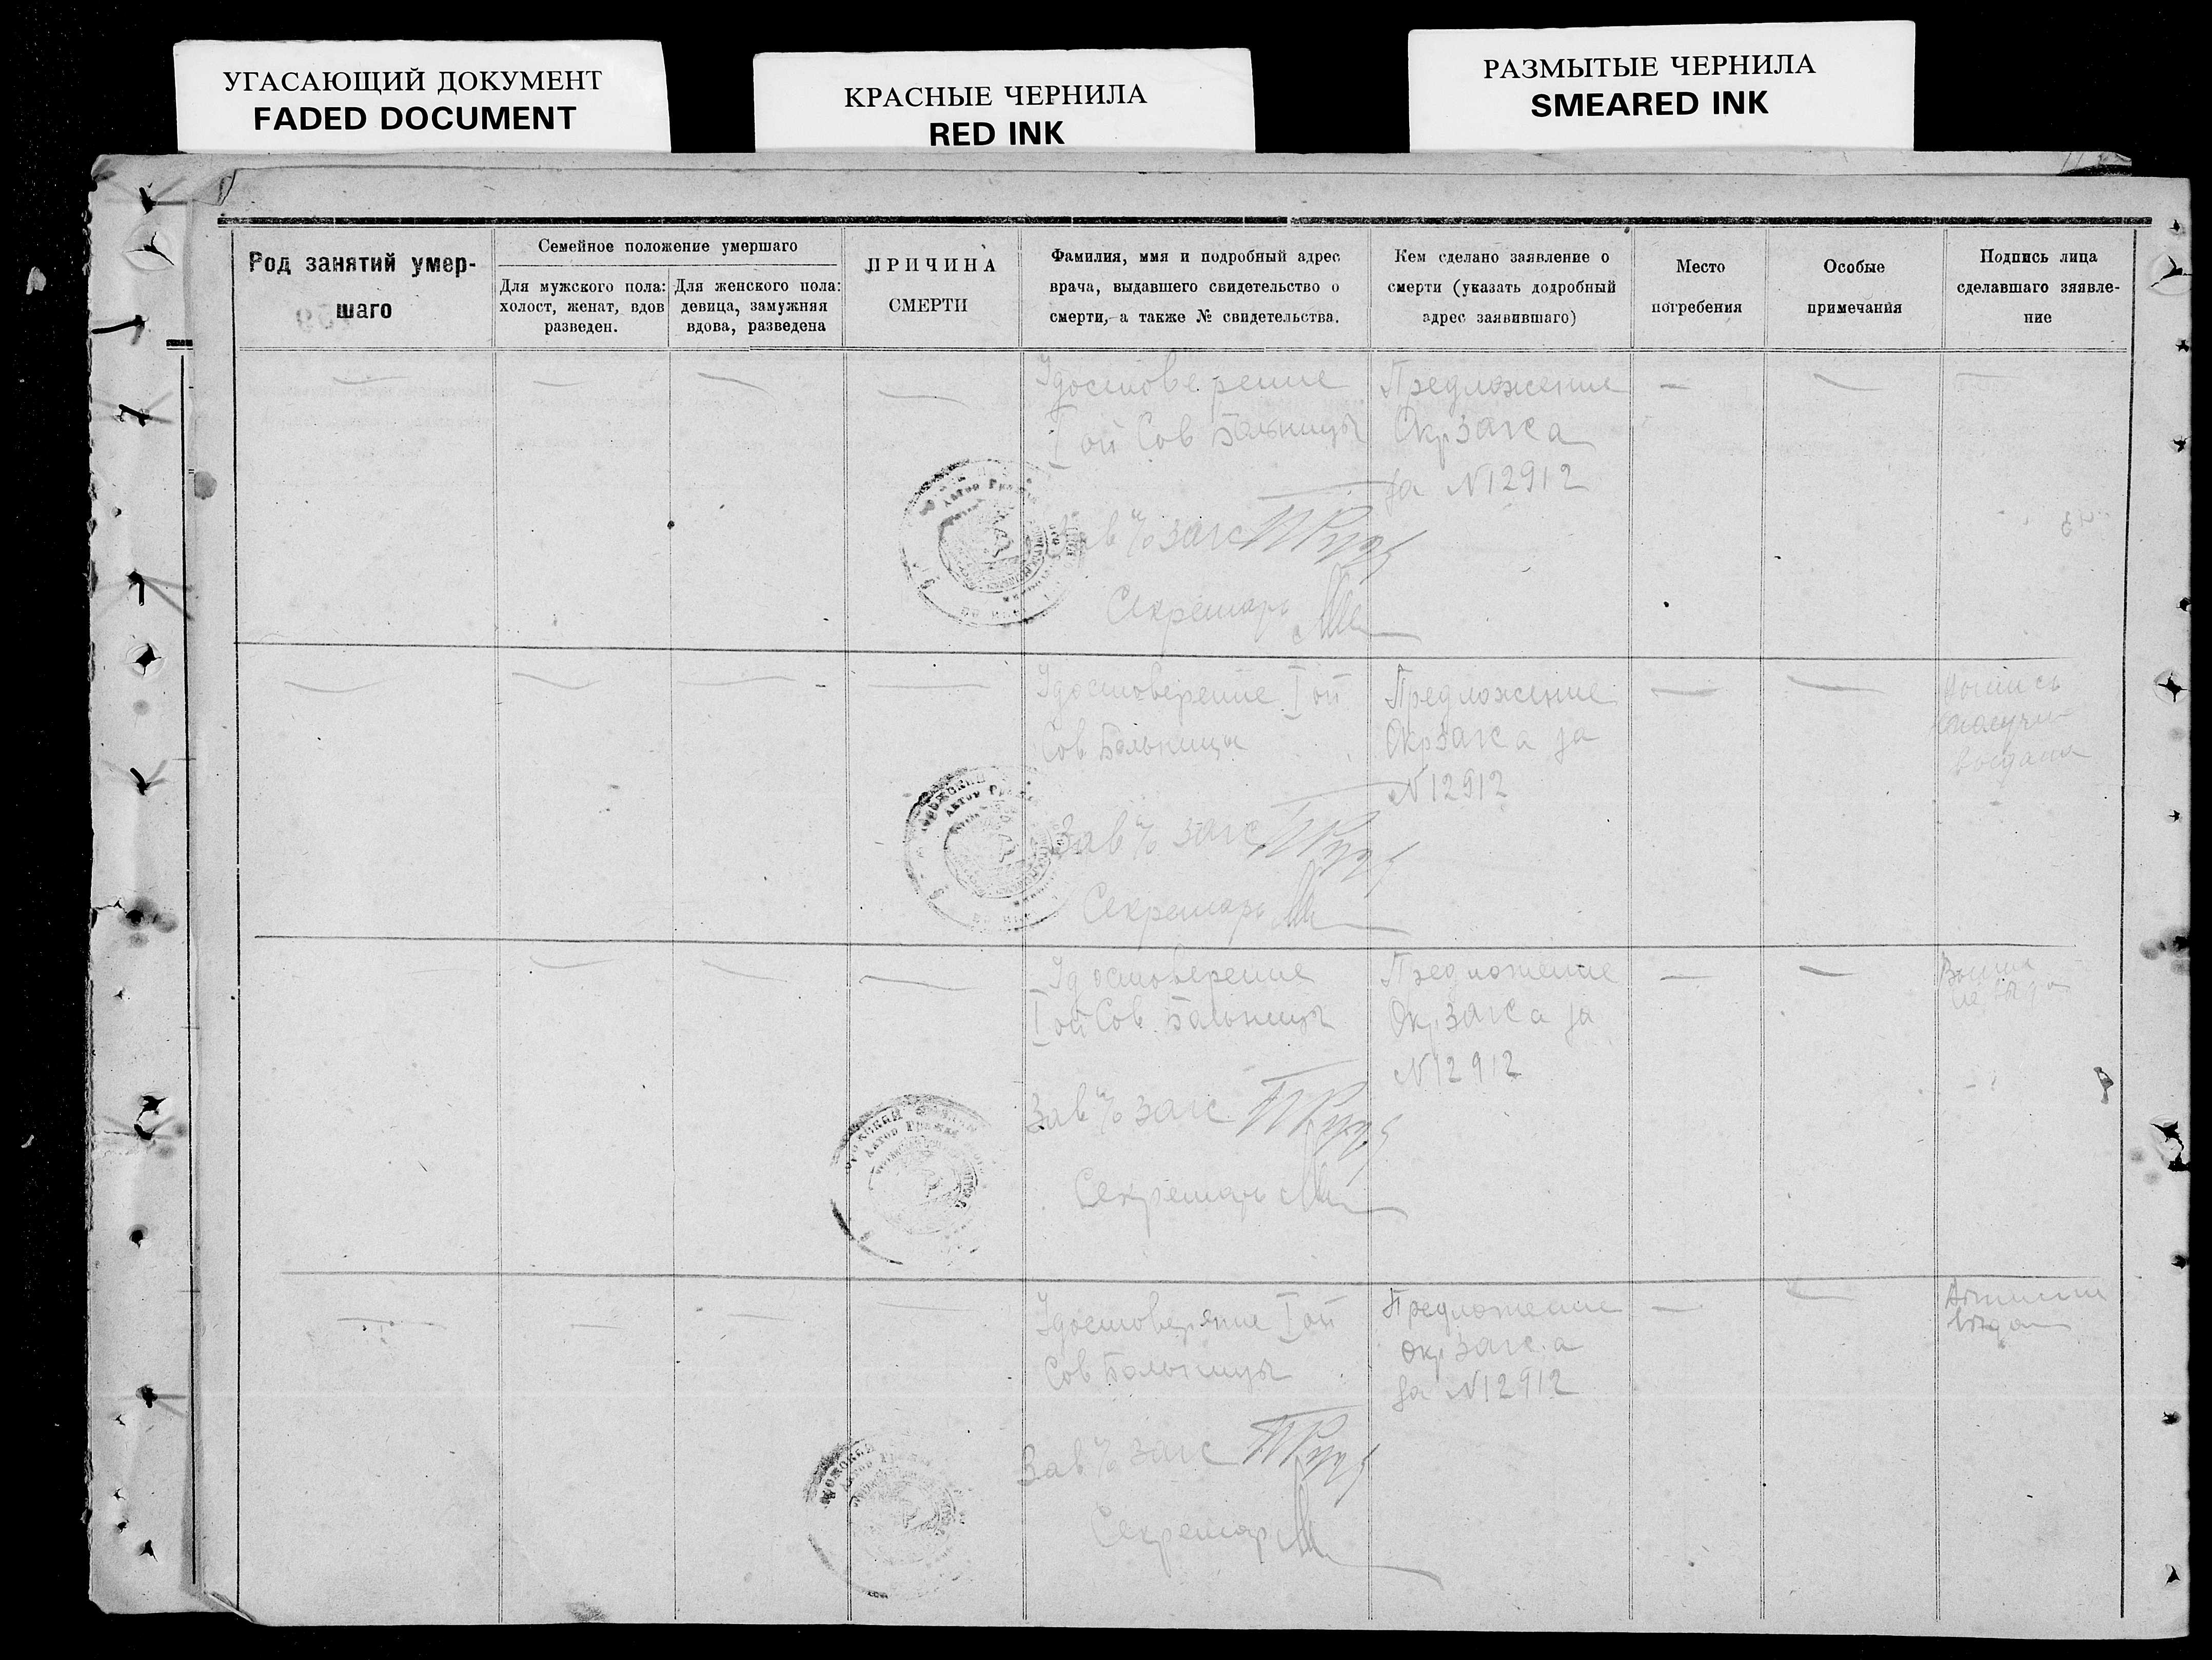 УГАСАЮЩИЙ ДОКУМЕНТ
FADED DOCUMENT
КРАСНЫЕ ЧЕРНИЛА
RED INK
РАЗМЫТЫЕ ЧЕРНИЛА
SMEARED INK
Род занятий умер-
шаго
Семейное положение умершаго
Для мужского пола:
холост, женат, вдов
разведен.
Для женского пола:
девица, замужняя
вдова, разведена
ПРИЧИНА
СМЕРТИ
Фамилия, ммя и подробный адрес
врача, выдавшего свидетельство о
смерти, а также № свидетельства.
Кем сделано заявление о
смерти (указать додробный
адрес заявившаго)
Место
погребения
Особые
примечания
Подпись лица
сделавшаго зяявле-
ние
Удостоверение
I ой Сов Больницы
Зав п/о загс
Секретарь
Предложение
Окрзагса
за N12912
Удостоверение I ой
Сов Больницы
Зав п/о загс
Секретарь
Предложение
Окрзагса за
N12912
Удостоверение
I ой Сов. Больницы
Зав п/о загс
Секретарь
Предложение
Окрзагса за
N12912
Удостоверение I ой
Сов Больницы
Зав п/о загс
Секретарь
Предложение
Окрзагса
за N12912